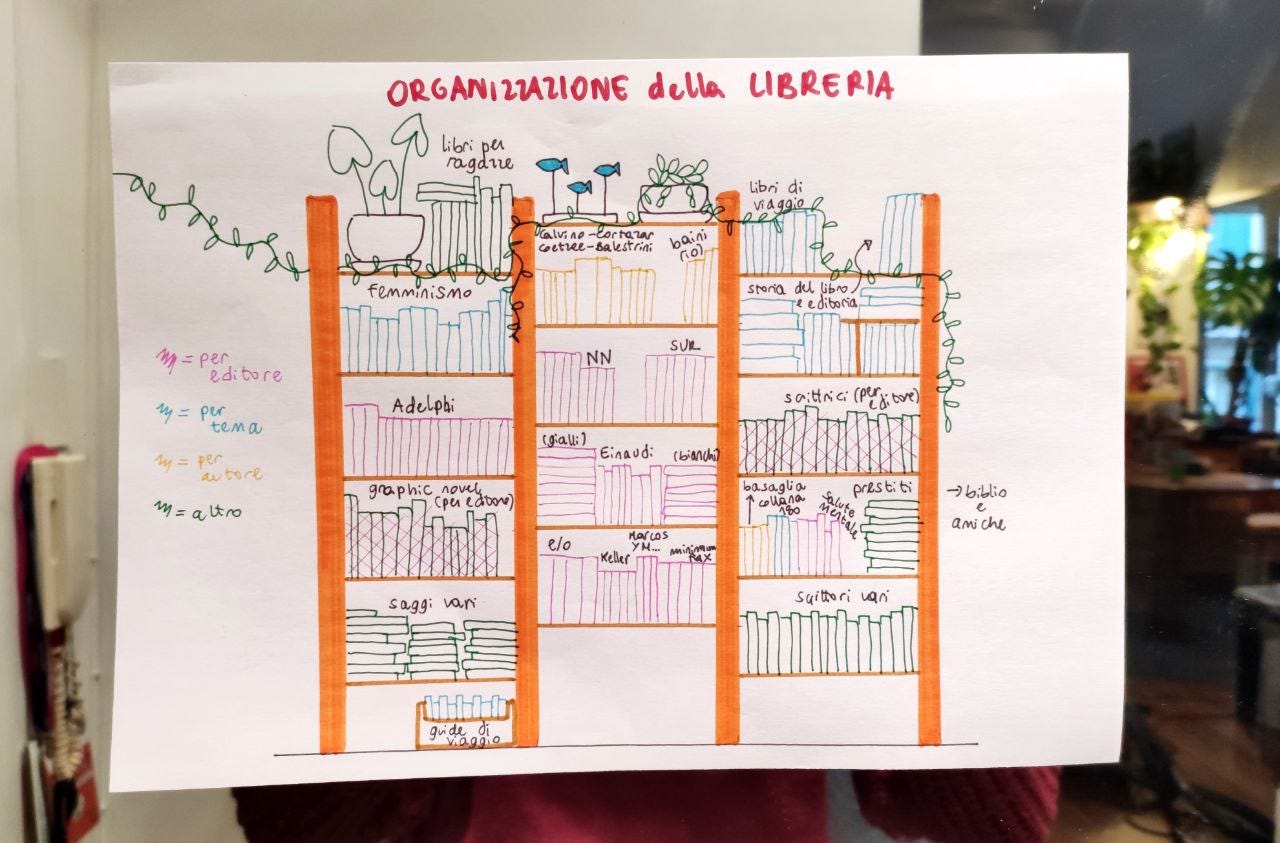 ORGANIZZAZIONE della LIBRERIA
libri per
ragazze
femminismo
Adelphi
graphic novel
(per editore)
saggi vari
guide di
viaggio
Calvino - Cortazar
Coetzee - Balestrini
NN
SUR
(gialli)
Einaudi
(bianchi)
e/o
Keller
Marcos
YM...
minimum
FAX
libri di
viaggio
storia del libro
e editoria
scrittrici (per
editore)
basaglia
collana
180
salute
mentale
prestiti
scrittori vari
= per
editore
= per
tema
= per
autore
= altro
→ biblio
e
amiche